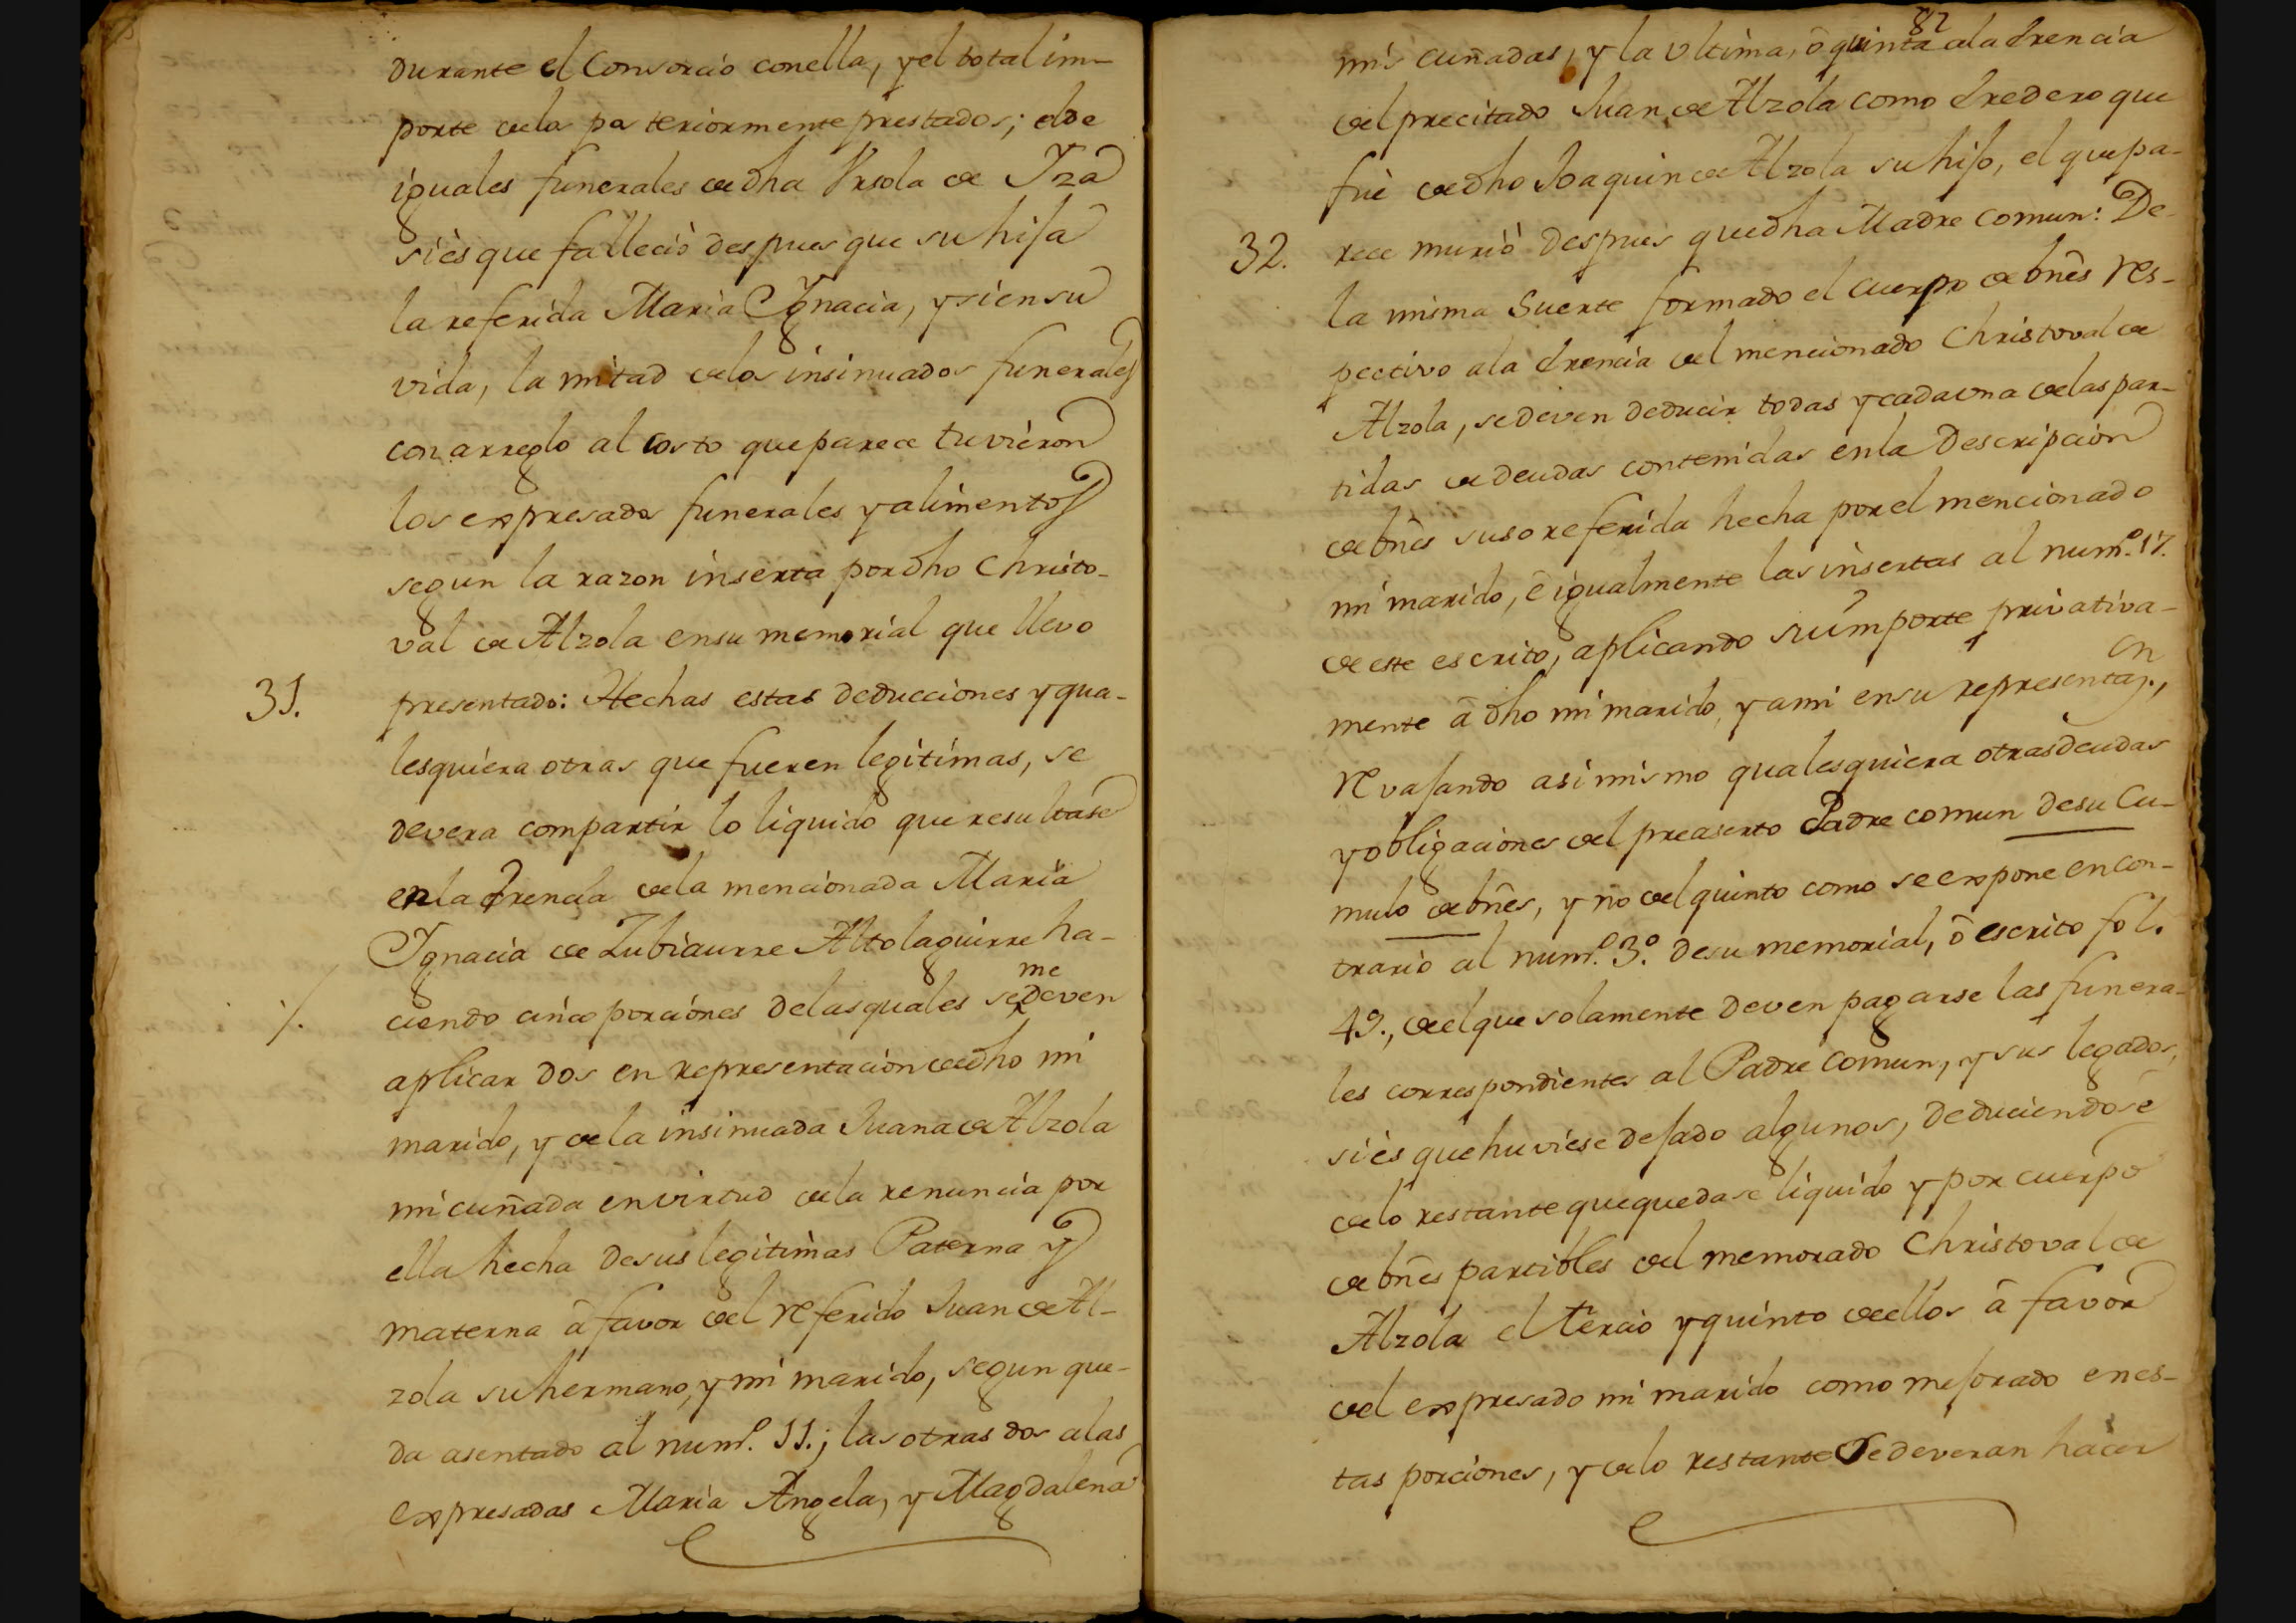 durante el Consorcio conella, y el total im-
porte dela posteriormente prestados; el de
iguales funerales de dha Ursola de Yza
si es que falleciò despues que su hija
la referida Maria Ygnacia, y si en su
vida, la mitad delos insinuados funerales
con arreglo al costo que parece tuvieron
los expresados funerales y alimentos
segun la razon inserta por dho Christo-
val de Alzola en su memorial que llevo
31. presentado: Hechas estas deducciones y qua-
lesquiera otras que fueren legitimas, se
devera compartir lo liquido que resultase
en la Erencia dela mencionada Maria
Ygnacia de Zubiaurre Altolaguirre ha-
ciendo cinco porciones delas quales se me deven
aplicar dos en representacion de dho mi
marido, y dela insinuada Juana de Alzola
mi cuñada en virtud dela renuncia por
ella hecha de sus legitimas Paterna y
materna â favor del referido Juan de Al-
zola su hermano, y mi marido, segun que-
da asentado al num.º 11.; las otras dos alas
expresadas Maria Angela, y Magdalena
82
mis cuñadas, y la ultima, ô quinta ala Erencia
del precitado Juan de Alzola como Eredero que
fuè de dho Joaquin de Alzola su hijo, el que pa-
32. rece muriò despues que dha Madre comun: De
la misma Suerte formado el cuerpo de bn̄es res-
pectivo ala Erencia del mencionado Christoval de
Alzola, se deven deducir todas y cada una delas par-
tidas de deudas contenidas en la Descripcion
de bn̄es suso referida hecha por el mencionado
mi marido, ê igualmente las insertas al num.º 17.
de este escrito, aplicando su importe privativa-
mente â dho mi marido, y a mi en su representaz.en,
revajando asi mismo qualesquiera otras deudas
y obligaciones del preaserto Padre comun de su Cu-
mulo de bn̄es, y no del quinto como se expone en con-
trario al num.º 3.º de su memorial, ô escrito fol.
49., del que solamente deven pagarse las funera-
les correspondientes al Padre comun, y sus legados,
si es que huviese dejado algunos, deduciendose
delo restante que quedase liquido y por cuerpo
de bn̄es partibles del memorado Christoval de
Alzola el tercio y quinto de ellos â favor
del expresado mi marido como mejorado en es-
tas porciones, y delo restante se deveran hacer